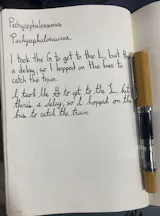 Pachycephalosaurus
Pachycephalosaurus
I took the G to get to the L, but there's
a delay, so I hopped on the bus to
catch the train.
I took the G to get to the L, but
there's a delay, so I hopped on the
bus to catch the train.